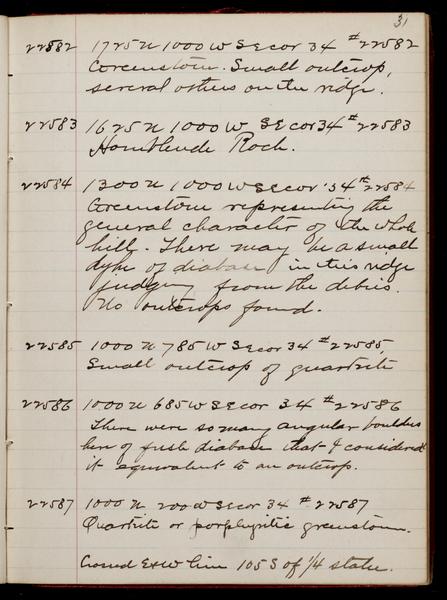 31
22582 1725 N 1000 W SE cor 34 #22582
Greenstone. Small outcrop,
several others on the ridge.
22583 1625 N 1000 W SE cor 34 #22583
Hornblende Rock.
22584 1300 N 1000 W SE cor 34 #22584
Greenstone representing the
general character of the whole
hill. There may be a small
dyke of diabase in this ridge
judging from the debris.
No outcrops found.
22585 1000 N 785 W SE cor 34 #22585
Small outcrop of quartzite
22586 1000 N 685 W SE cor 34 #22586
There were so many angular boulders
here of fresh diabase that I considered
it equivalent to an outcrop.
22587 1000 N 200 W SE cor 34 # 22587
Quartzite or porphyritic greenstone.
Crossed E & W line 105 S of 1/4 stake.